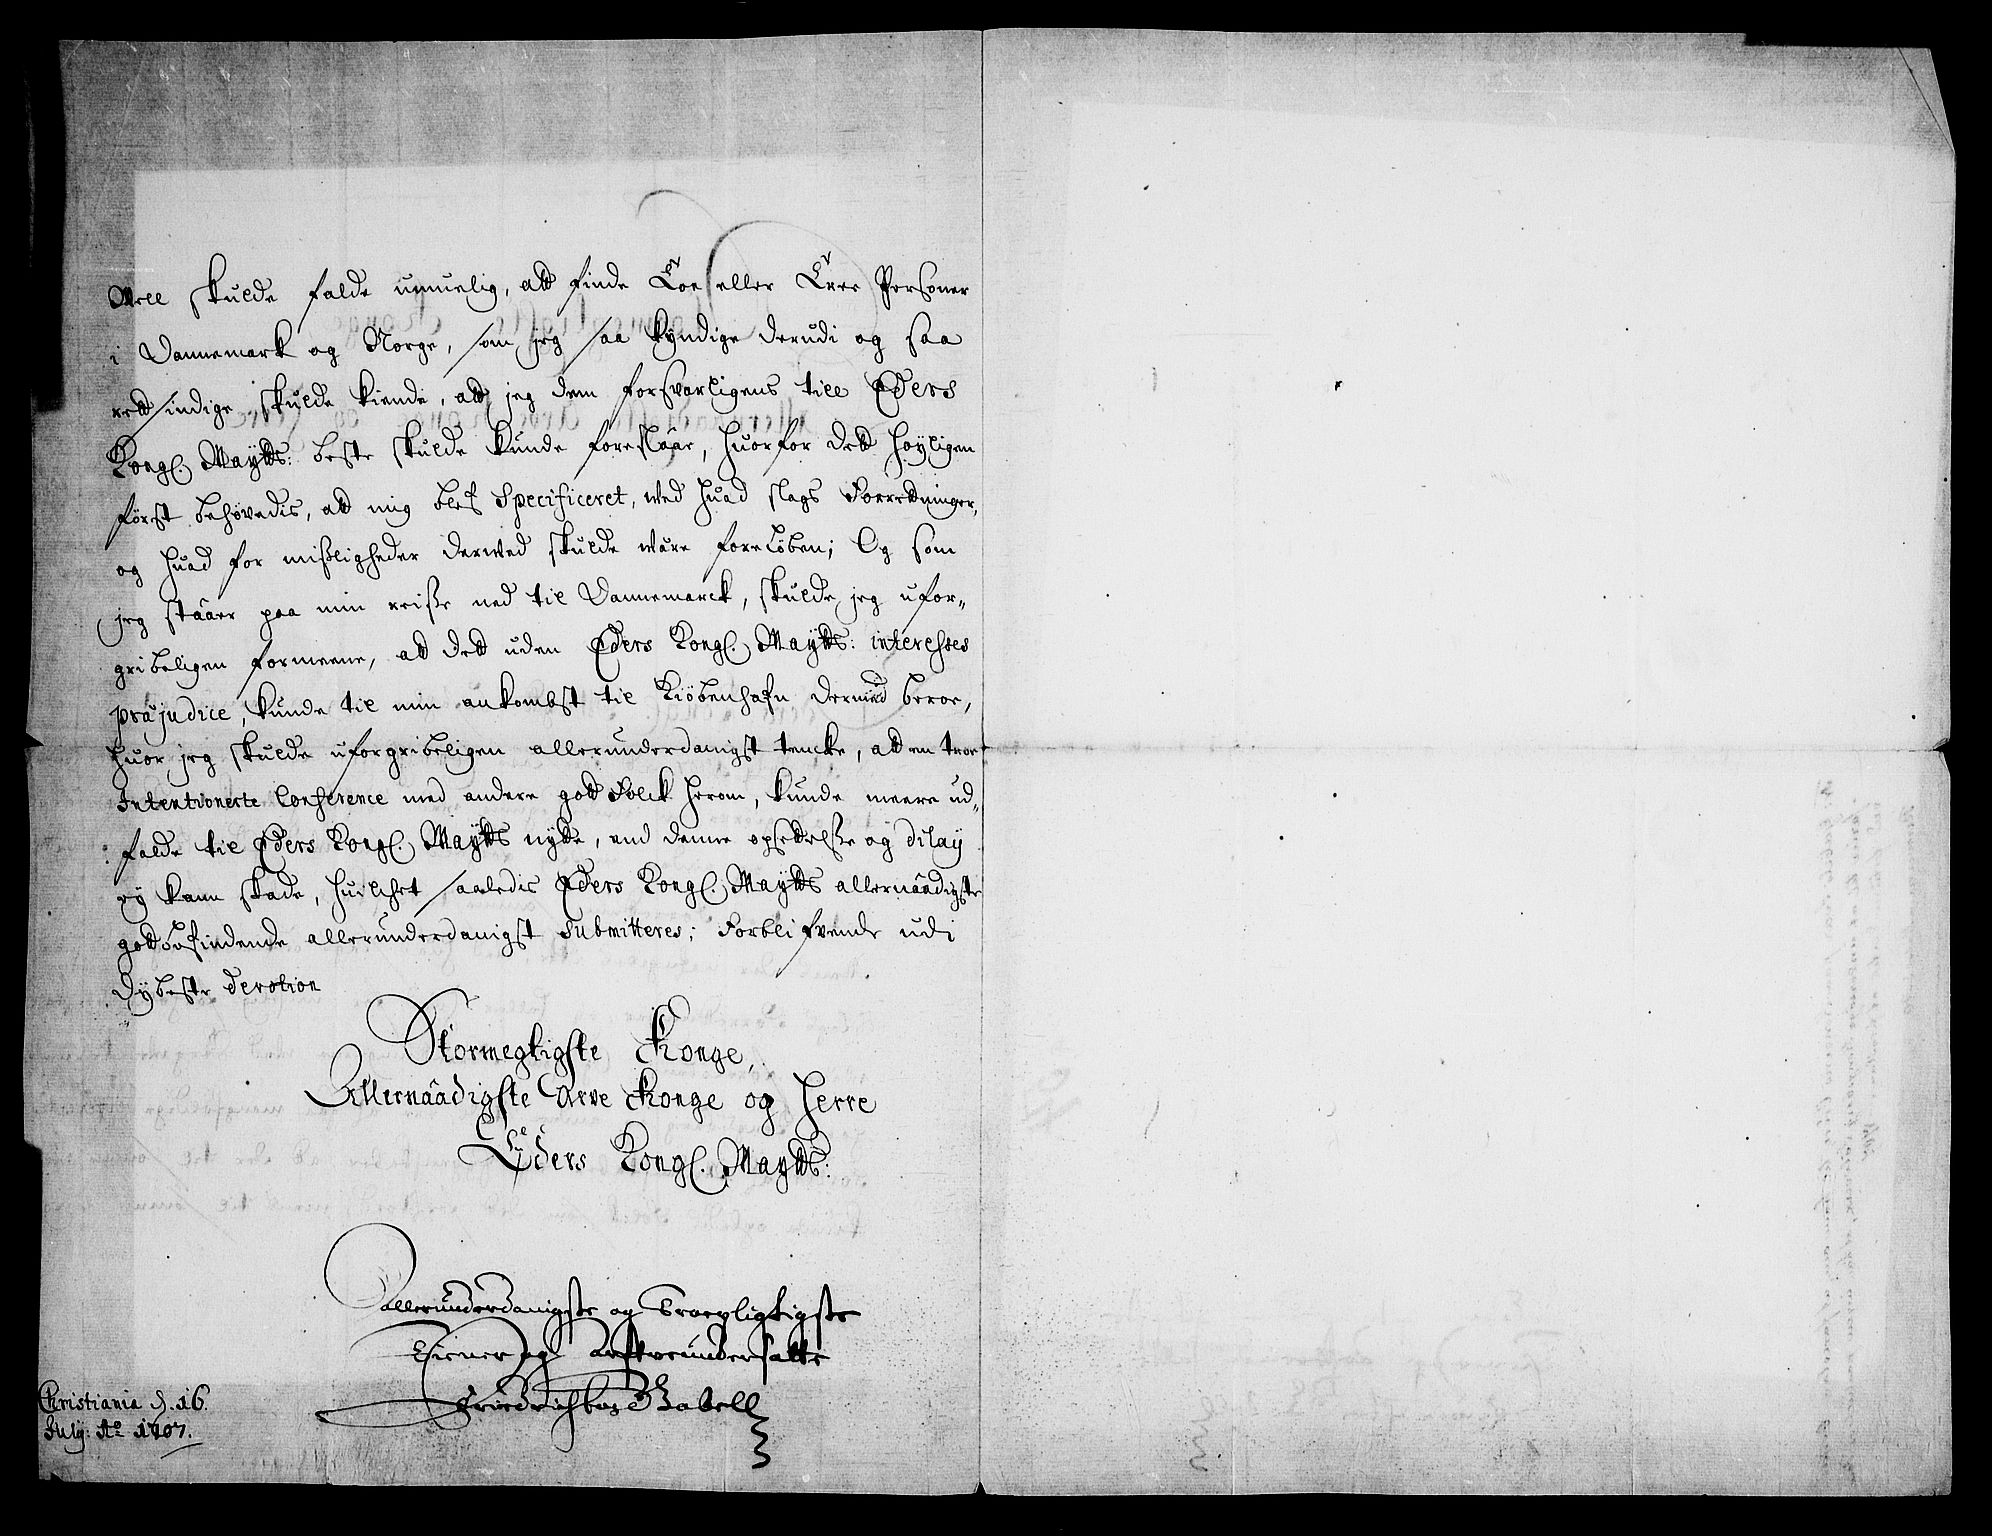 well skulde falde umuelig, att finde Toe eller Tree Personer
i Dannemark og Norge, som jeg saa kyndige derudi og saa
rettsindige skulde kiende, att jeg dem forsvarligens till Eders
Kongl. Maytts: beste skulde kunde foreslåae, huorfor dett höyligen
först behövedis, att mig blef Specificeret, wed huad slags Forrettninger,
og huad for mißligheder derwed skulde wäre forelöben; Og som
jeg ståaer paa min reiße ned til Dannemarck, skulde jeg ufor-
gribeligen formeene, att dett uden Eders Kongl. Maytts: interesses
präjudice, kunde til min ankombst til Kiöbenhafn dermed beroe,
huor jeg skulde uforgribeligen allerunderdanigst tencke, att en troe
Intentionerte Conference med andere gott Folck herom, kunde meere ud-
falde til Eders Kongl. Maytts nytte, end denne opsettelße og dilay
ey kann skade, huilchet saaledis Eders Kongl. Maytts allernåadigste
gottbefindende allerunderdanigst Submitteres; Forblifvende udi
dybeste devotion
Stormegtigste Konge,
Allernåadigste Arve Konge og Herre
Eders Kongl. Maytts:
allerunderdanigste og Troepligtigste
Tiener og Arfveundersatte
Friedrich Gabell
Christiania d. 16.
July: Ao 1707.